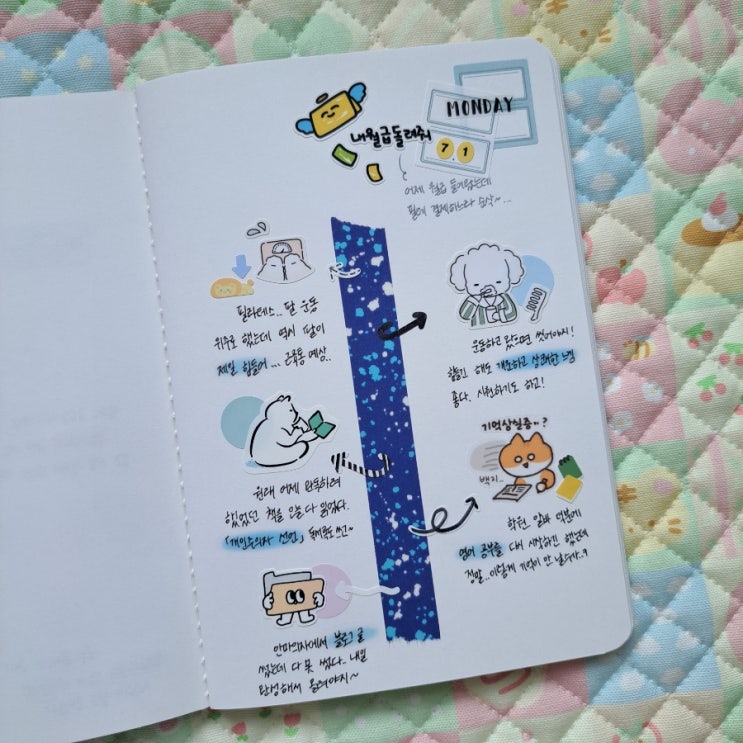 MONDAY
내월급돌려줘
7.1
어제 월급 들어왔는데
필테 결제하느라 순삭~...
필라테스.. 팔 운동
위주로 했는데 역시 팔이
제일 힘들어... 근육통 예상..
운동하고 왔으면 씻어야지!
힘들긴 해도 개운하고 상쾌한 느낌
좋다. 시원하기도 하고!
원래 어제 완독하려
했었던 책을 오늘 다 읽었다.
「개인주의자 선언」 독서록도 쓰고~
기억상실증..?
백지..
학원 알바 덕분에
영어 공부를 다시 시작하긴 했는데
정말..이렇게 기억이 안 날수가..?
안마의자에서 블로그 글
썼는데 다 못 썼다.. 내일
완성해서 올려야지~